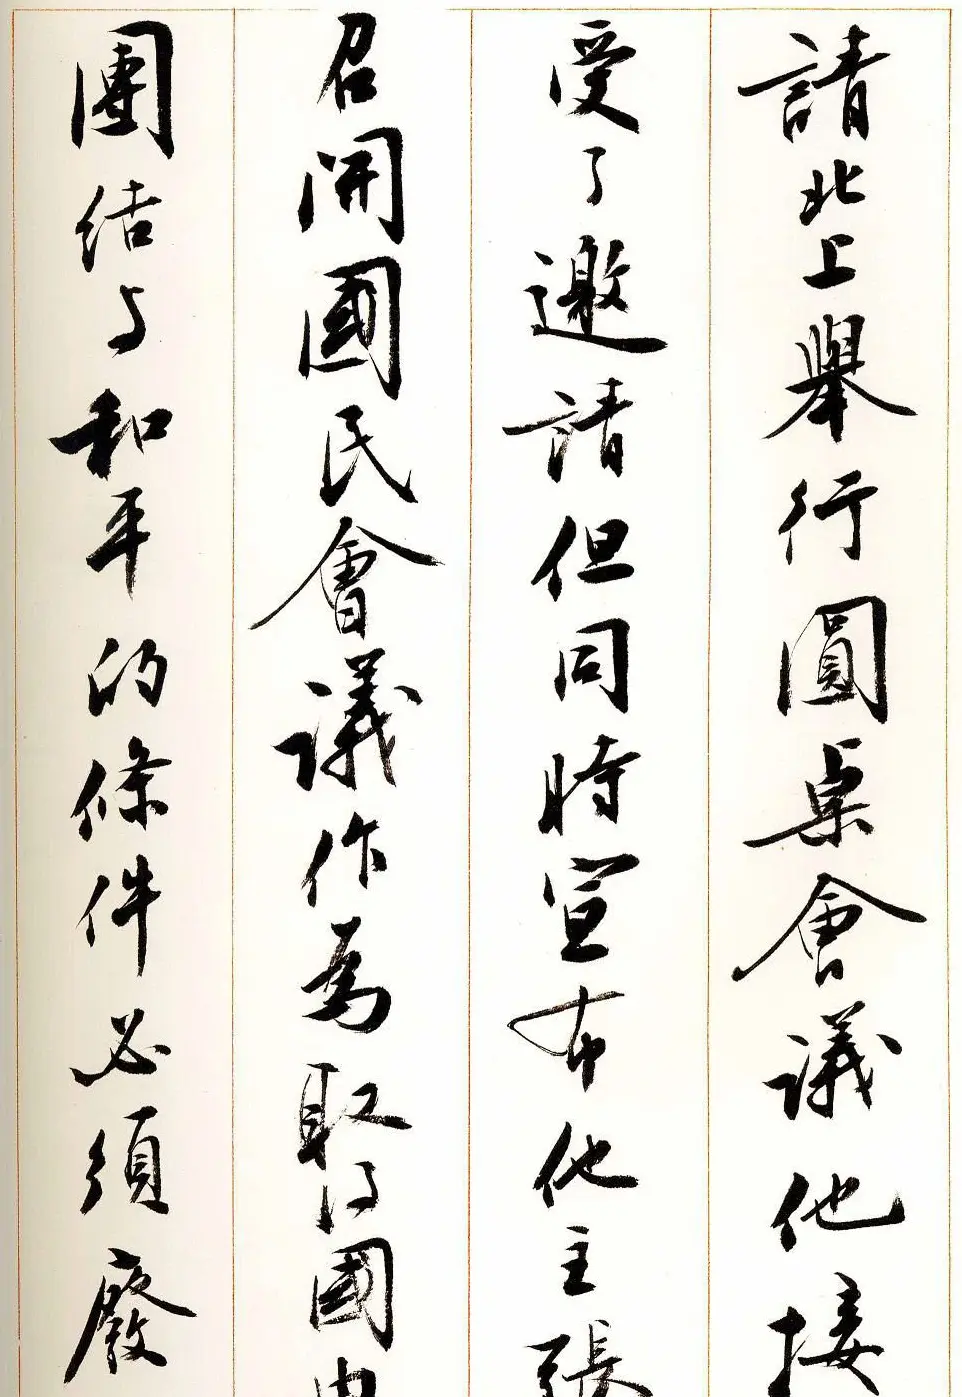 請北上舉行圓桌會議他接
受了邀請但同時宣布他主張
召開國民會議作為取得國内
團結与和平的條件必須廢